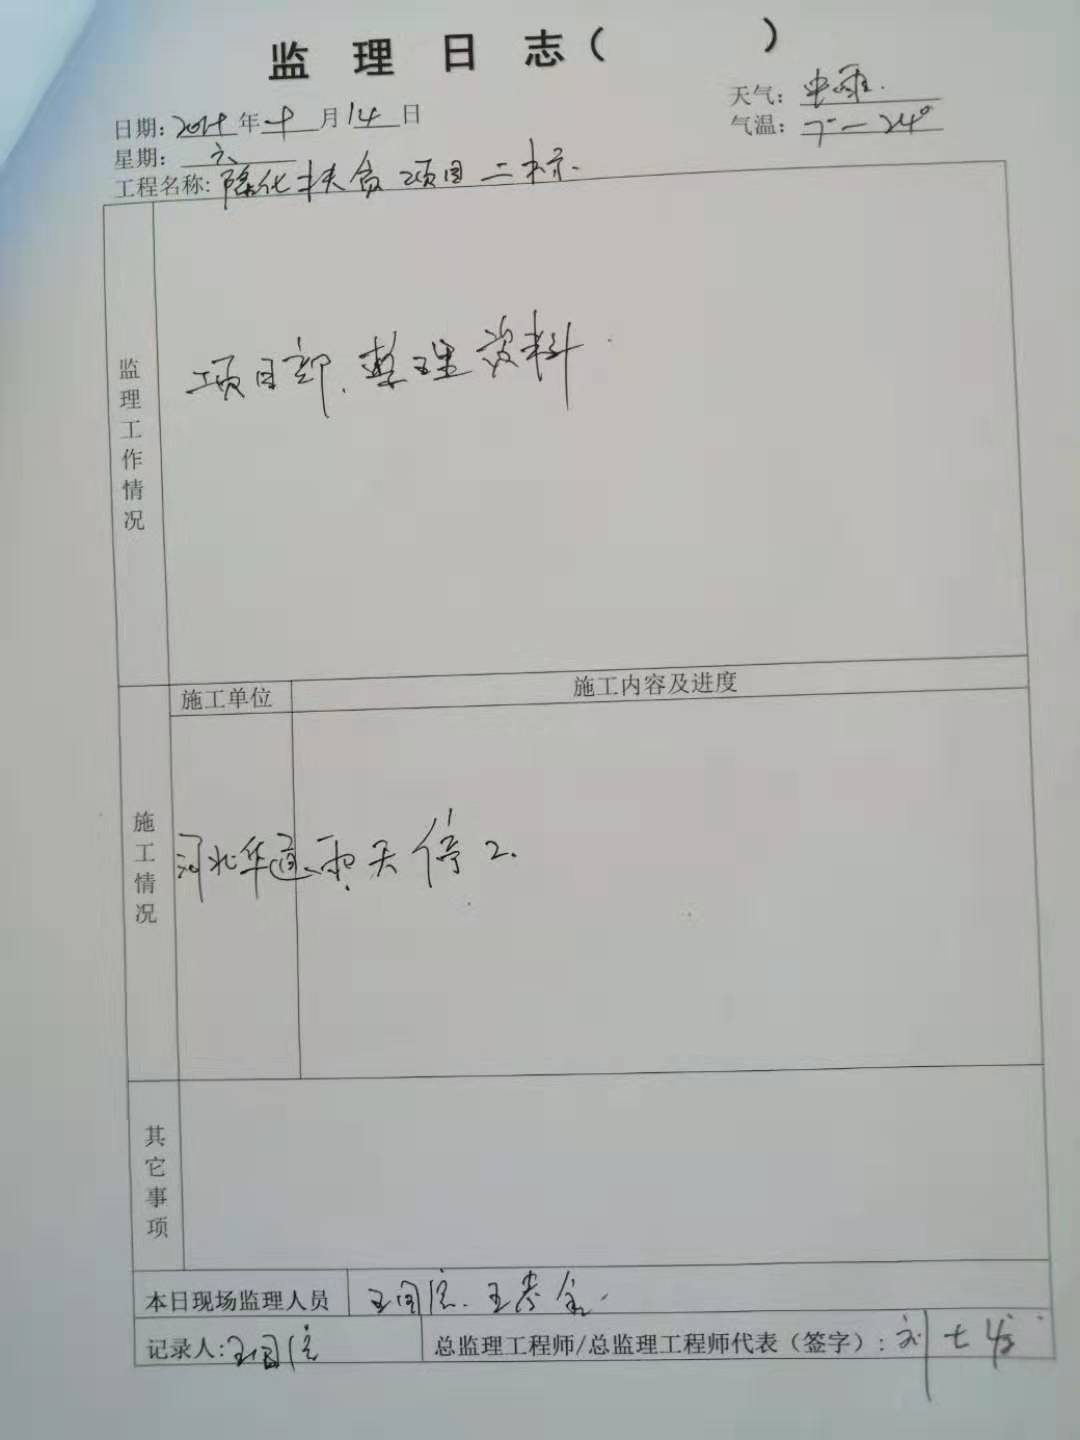 监 理 日 志（ ）
日期：20 年 十 月 14 日
天气：中雨.
星期：六
气温：7°—24°
工程名称：隆化扶贫项目二标.
监理工作情况
项目部.整理资料.
施工单位
施工内容及进度
施工情况
河北华通
雨天停工.
其它事项
本日现场监理人员
王国信.王
记录人：王国信
总监理工程师/总监理工程师代表（签字）：刘